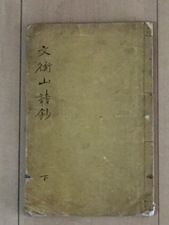 文衡山詩鈔
下